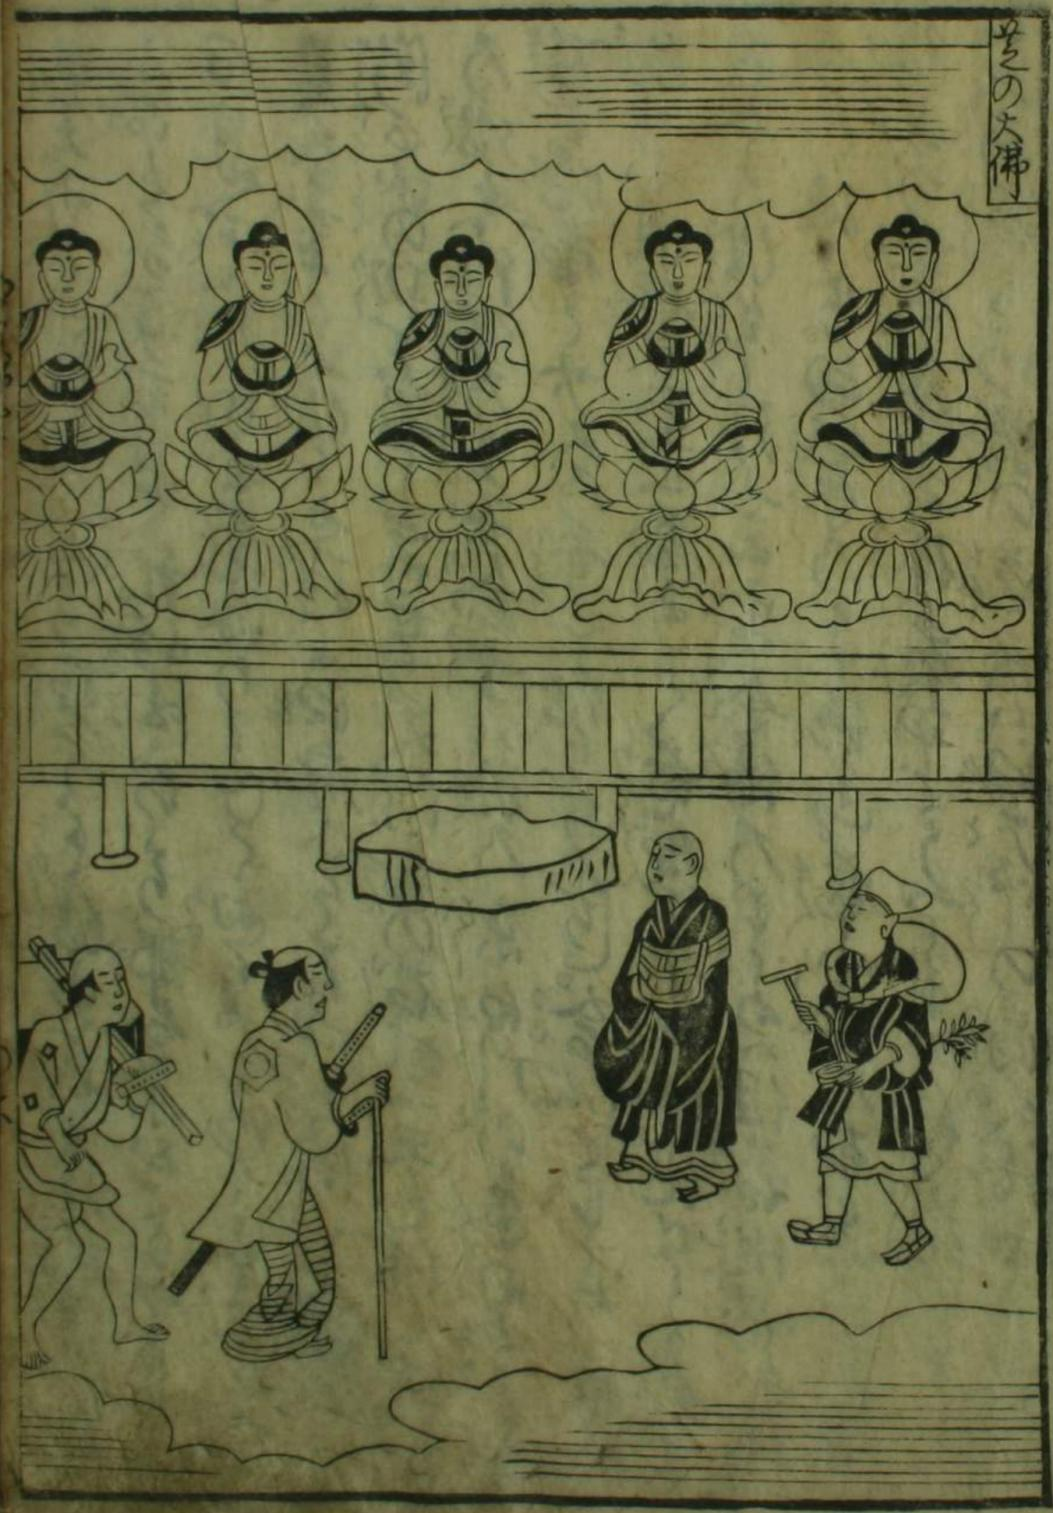 芝の大佛